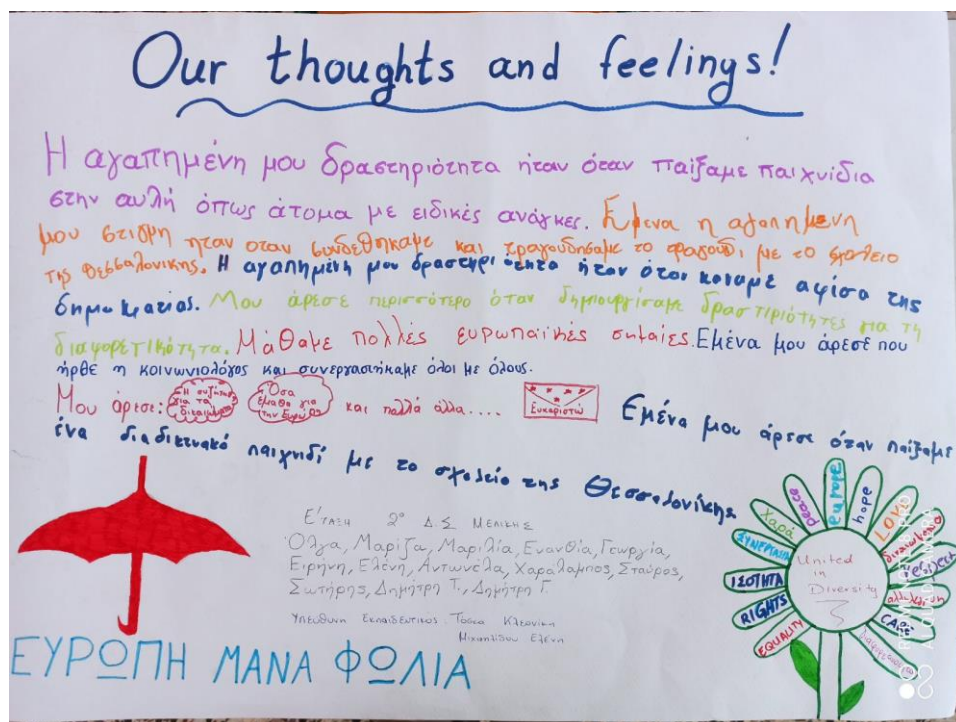 Our thoughts and feelings!
Η αγαπημένη μου δραστηριότητα ήταν όταν παίξαμε παιχνίδια
στην αυλή όπως άτομα με ειδικές ανάγκες. Εμενα η αγαπημενη
μου στιγμη ηταν οταν συνδεθηκαμε και τραγουδησαμε το τραγούδι, με το σχολειο
της Θεσσαλονικης. Η αγαπημένη μου δραστηριότητα ήταν όταν καναμε αφίσα της
δημοκρατίας. Μου άρεσε περισσότερο όταν δημιουργίσαμε δραστιριότητες για τη
διαφορετικότητα. Μάθαμε πολλές ευρωπαϊκές σημαίες. Εμένα μου άρεσε που
ήρθε η κοινωνιολόγος και συνεργαστήκαμε όλοι με όλους.
Μου άρεσε: Η συζήτηση για τα δικαιώματα Όσα έμαθα για την Ευρώπη και πολλά άλλα.... Ευχαριστώ Εμένα μου άρεσε όταν παίξαμε
ένα διαδικτυακό παιχνιδί με το σχολείο της Θεσσαλονίκης
Ε' τάξη 2ο Δ.Σ Μελίκης
Όλγα, Μαρίζα, Μαριλία, Ευανθία, Γεωργία,
Ειρήνη, Ελένη, Αντωνέλα, Χαράλαμπος, Σταύρος,
Σωτήρης, Δημήτρη Τ., Δημήτρη Γ.
Υπεύθυνη Εκπαιδευτικος: Τόσκα Κλεονίκη
Μιχαηλίδου Ελένη
ΕΥΡΩΠΗ ΜΑΝΑ ΦΩΛΙΑ
EQUALITY
RIGHTS
ΙΣΟΤΗΤΑ
ΣΥΝΕΡΓΑΣΙΑ
Χαρά
peace
europe
hope
LOVE
δικαιώματα
respect
αλληλεγγύη
CARE
διαφορετικότητα
United
in
Diversity